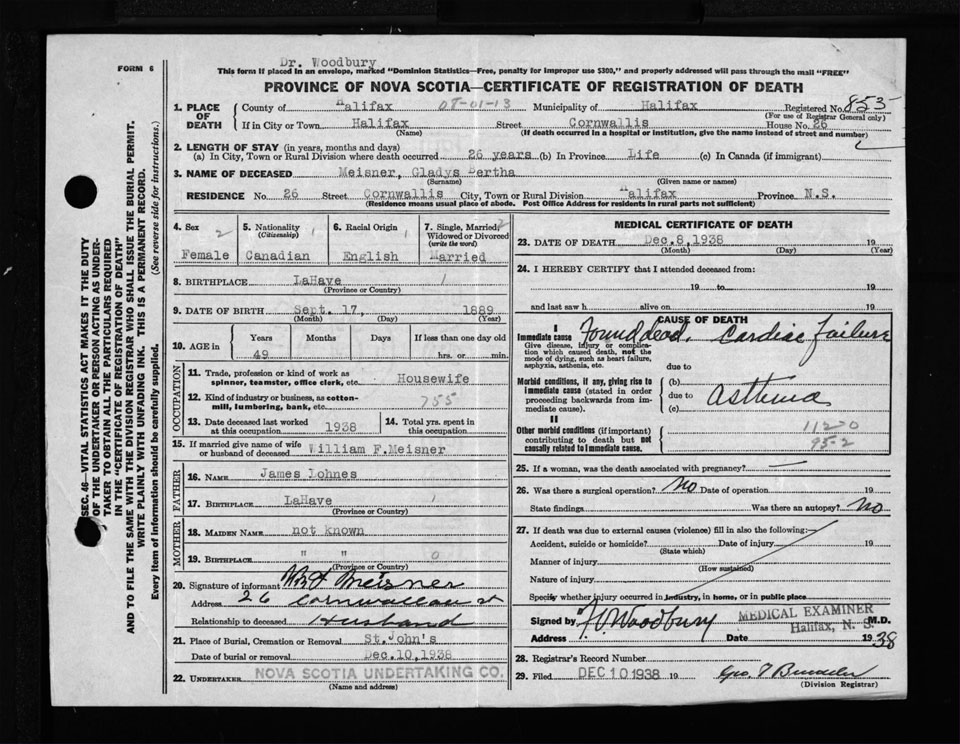 Dr. Woodbury
FORM 6
This form if placed in an envelope, marked "Dominion Statistics—Free, penalty for improper use $300," and properly addressed will pass through the mail "FREE"
PROVINCE OF NOVA SCOTIA—CERTIFICATE OF REGISTRATION OF DEATH
1. PLACE OF DEATH
County of Halifax 07-01-13 Municipality of Halifax Registered No. 853
(For use of Registrar General only)
If in City or Town Halifax Street Cornwallis House No. 26
(Name) (If death occurred in a hospital or institution, give the name instead of street and number)
2. LENGTH OF STAY (in years, months and days)
(a) In City, Town or Rural Division where death occurred 26 years (b) In Province Life (c) In Canada (if immigrant)
3. NAME OF DECEASED Meisner, Gladys Bertha
(Surname) (Given name or names)
RESIDENCE No. 26 Street Cornwallis City, Town or Rural Division Halifax Province N.S.
(Residence means usual place of abode. Post Office Address for residents in rural parts not sufficient)
4. Sex 2
Female
5. Nationality (Citizenship) 1
Canadian
6. Racial Origin 1
English
7. Single, Married, Widowed or Divorced (write the word) 2
Married
8. BIRTHPLACE LaHave 1
(Province or Country)
9. DATE OF BIRTH Sept. 17, 1889
(Month) (Day) (Year)
10. AGE in
Years Months Days If less than one day old
49 hrs. or min.
OCCUPATION
11. Trade, profession or kind of work as spinner, teamster, office clerk, etc. Housewife
12. Kind of industry or business, as cotton-mill, lumbering, bank, etc. 755
13. Date deceased last worked at this occupation 1938
14. Total yrs. spent in this occupation
15. If married give name of wife or husband of deceased William F.Meisner
FATHER
16. NAME James Lohnes
17. BIRTHPLACE LaHave 1
(Province or Country)
MOTHER
18. MAIDEN NAME not known
19. BIRTHPLACE " " 0
(Province or Country)
20. Signature of informant Wm F Meisner
Address 26
Relationship to deceased Husband
21. Place of Burial, Cremation or Removal St.John's
Date of burial or removal Dec.10,1938
22. UNDERTAKER NOVA SCOTIA UNDERTAKING CO.
(Name and address)
MEDICAL CERTIFICATE OF DEATH
23. DATE OF DEATH Dec.8,1938 19
(Month) (Day) (Year)
24. I HEREBY CERTIFY that I attended deceased from:
19 to 19
and last saw h alive on 19
CAUSE OF DEATH
I
Immediate cause Found dead. Cardiac failure
Give disease, injury or complication which caused death, not the mode of dying, such as heart failure, asphyxia, asthenia, etc.
due to
Morbid conditions, if any, giving rise to immediate cause (stated in order proceeding backwards from immediate cause).
(b)
due to Asthma
(c)
II
Other morbid conditions (if important) contributing to death but not causally related to immediate cause.
112-0
95-2
25. If a woman, was the death associated with pregnancy? —
26. Was there a surgical operation? No Date of operation 19
State findings Was there an autopsy? No
27. If death was due to external causes (violence) fill in also the following:
Accident, suicide or homicide? Date of injury 19
(State which)
Manner of injury
(How sustained)
Nature of injury
Specify whether injury occurred in industry, in home, or in public place
MEDICAL EXAMINER
Signed by Woodbury M.D.
Halifax, N. S.
Address Date 1938
28. Registrar's Record Number
29. Filed DEC 10 1938 19
(Division Registrar)
SEC. 46—VITAL STATISTICS ACT MAKES IT THE DUTY
OF THE UNDERTAKER OR PERSON ACTING AS UNDER-
TAKER TO OBTAIN ALL THE PARTICULARS REQUIRED
IN THE "CERTIFICATE OF REGISTRATION OF DEATH"
AND TO FILE THE SAME WITH THE DIVISION REGISTRAR WHO SHALL ISSUE THE BURIAL PERMIT.
WRITE PLAINLY WITH UNFADING INK. THIS IS A PERMANENT RECORD.
Every item of information should be carefully supplied. (See reverse side for instructions.)